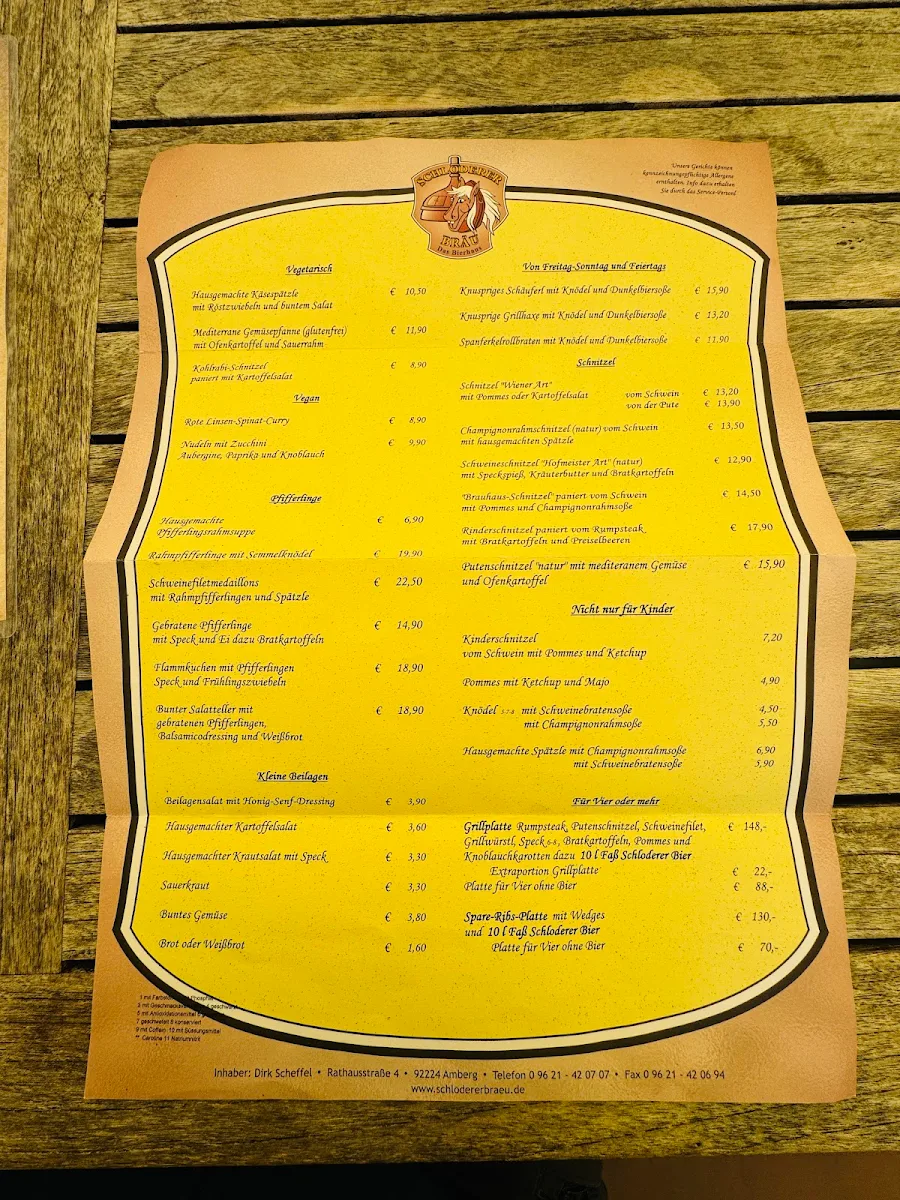 SCHLODERER
BRÄU
Das Bierhaus
Unsere Gerichte können
kennzeichnungspflichtige Allergene
ernthalten. Info dazu erhalten
Sie durch das Service-Personl
Vegetarisch
Hausgemachte Käsespätzle € 10,50
mit Röstzwiebeln und buntem Salat
Mediterrane Gemüsepfanne (glutenfrei) € 11,90
mit Ofenkartoffel und Sauerrahm
Kohlrabi-Schnitzel € 8,90
paniert mit Kartoffelsalat
Vegan
Rote Linsen-Spinat-Curry € 8,90
Nudeln mit Zucchini € 9,90
Aubergine, Paprika und Knoblauch
Pfifferlinge
Hausgemachte € 6,90
Pfifferlingsrahmsuppe
Rahmpfifferlinge mit Semmelknödel € 19,90
Schweinefiletmedaillons € 22,50
mit Rahmpfifferlingen und Spätzle
Gebratene Pfifferlinge € 14,90
mit Speck und Ei dazu Bratkartoffeln
Flammkuchen mit Pfifferlingen € 18,90
Speck und Frühlingszwiebeln
Bunter Salatteller mit € 18,90
gebratenen Pfifferlingen,
Balsamicodressing und Weißbrot
Kleine Beilagen
Beilagensalat mit Honig-Senf-Dressing € 3,90
Hausgemachter Kartoffelsalat € 3,60
Hausgemachter Krautsalat mit Speck € 3,30
Sauerkraut € 3,30
Buntes Gemüse € 3,80
Brot oder Weißbrot € 1,60
Von Freitag-Sonntag und Feiertags
Knuspriges Schäuferl mit Knödel und Dunkelbiersoße € 15,90
Knusprige Grillhaxe mit Knödel und Dunkelbiersoße € 13,20
Spanferkelrollbraten mit Knödel und Dunkelbiersoße € 11.90
Schnitzel
Schnitzel "Wiener Art"
mit Pommes oder Kartoffelsalat vom Schwein € 13,20
von der Pute € 13,90
Champignonrahmschnitzel (natur) vom Schwein € 13,50
mit hausgemachten Spätzle
Schweineschnitzel "Hofmeister Art" (natur) € 12,90
mit Speckspieß, Kräuterbutter und Bratkartoffeln
"Brauhaus-Schnitzel" paniert vom Schwein € 14,50
mit Pommes und Champignonrahmsoße
Rinderschnitzel paniert vom Rumpsteak € 17,90
mit Bratkartoffeln und Preiselbeeren
Putenschnitzel "natur" mit mediteranem Gemüse € 15,90
und Ofenkartoffel
Nicht nur für Kinder
Kinderschnitzel 7,20
vom Schwein mit Pommes und Ketchup
Pommes mit Ketchup und Majo 4,90
Knödel 3-7-8 mit Schweinebratensoße 4,50
mit Champignonrahmsoße 5,50
Hausgemachte Spätzle mit Champignonrahmsoße 6,90
mit Schweinebratensoße 5,90
Für Vier oder mehr
Grillplatte Rumpsteak, Putenschnitzel, Schweinefilet, € 148,-
Grillwürstl, Speck 6-8, Bratkartoffeln, Pommes und
Knoblauchkarotten dazu 10 l Faß Schloderer Bier
Extraportion Grillplatte € 22,-
Platte für Vier ohne Bier € 88,-
Spare-Ribs-Platte mit Wedges € 130,-
und 10 l Faß Schloderer Bier
Platte für Vier ohne Bier € 70,-
1 mit Farbstoff Phosphat
3 mit Geschmacksverstärker 4 geschwärzt
5 mit Antioxidationsmittel 6
7 geschwefelt 8 konserviert
9 mit Coffein 12 mit Süssungsmittel
** Caroline 11 Natriumnitrit
Inhaber: Dirk Scheffel • Rathausstraße 4 • 92224 Amberg • Telefon 0 96 21 - 42 07 07 • Fax 0 96 21 - 42 06 94
www.schlodererbraeu.de